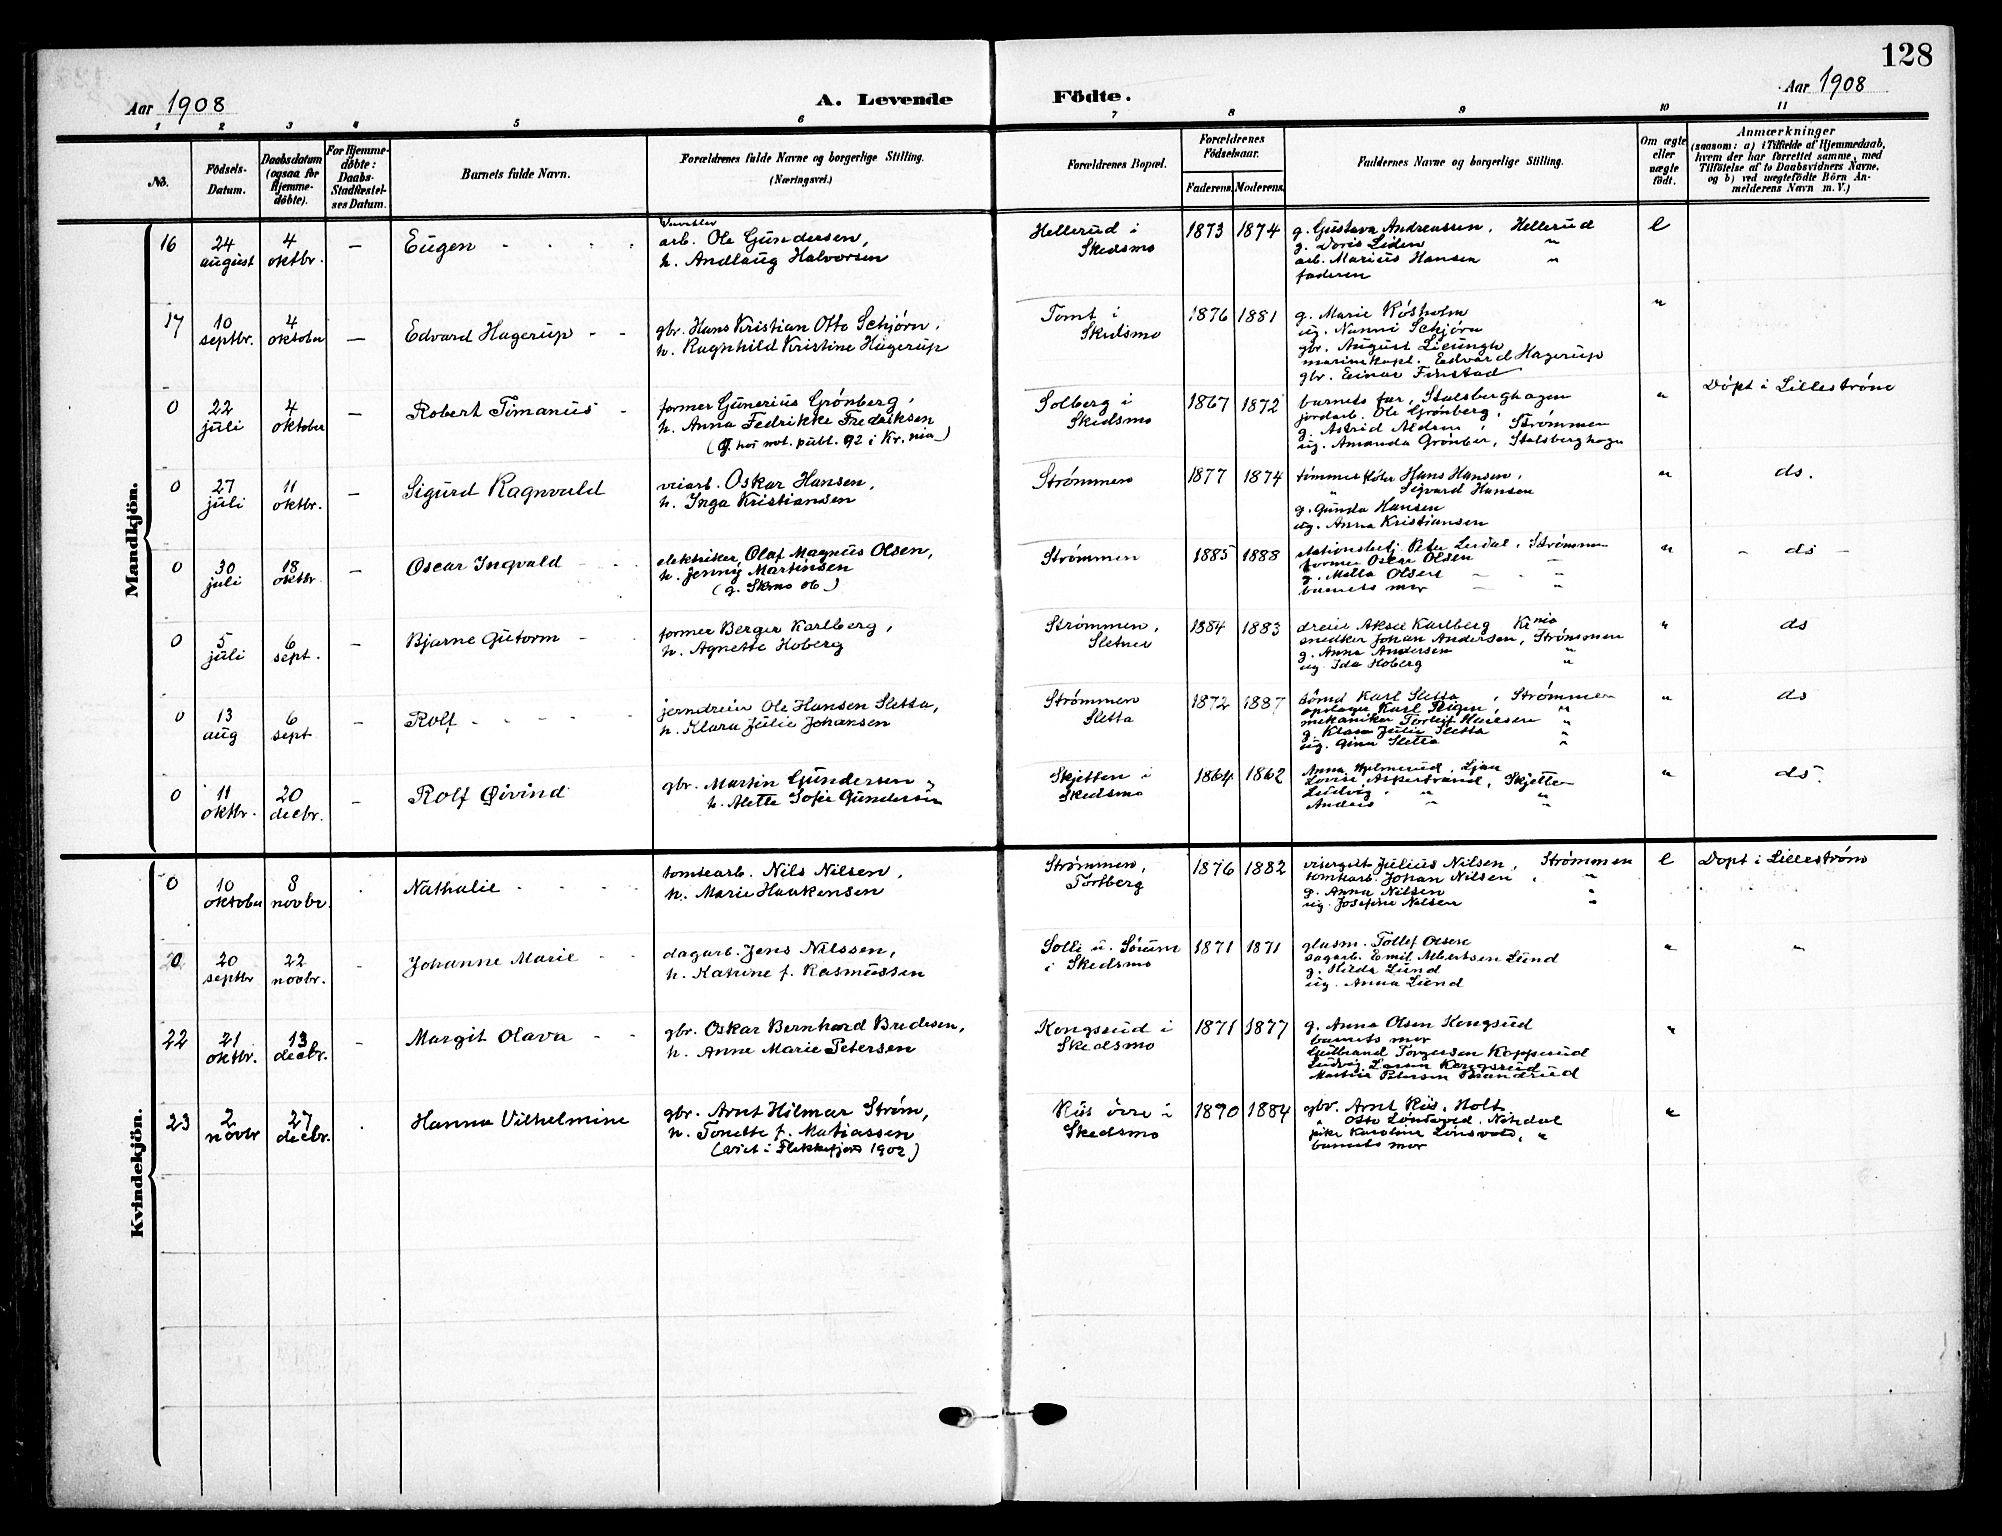 128
Aar 1908
A. Levende Födte.
Aar 1908
1 2 3 4 5 6 7 8 9 10 11
No.
Födsels-
Datum.
Daabsdatum
(ogsaa for
Hjemme-
döbte).
For Hjemme-
döbte:
Daabs-
Stadfæstel-
ses Datum.
Barnets fulde Navn.
Forældrenes fulde Navne og borgerlige Stilling.
(Næringsvei.)
Forældrenes Bopæl.
Forældrenes
Födselsaar.
Faderens. Moderens.
Faddernes Navne og borgerlige Stilling.
Om ægte
eller
uægte
födt.
Anmærkninger
(saasom: a) i Tilfælde af Hjemmedaab,
hvem der har forrettet samme, med
Tilföielse af to Daabsvidners Navne,
og b) ved uægtefödte Börn An-
melderens Navn m. V.)
Mandkjön.
16
24
august
4
oktbr.
—
Eugen
arb. Ole Gundersen,
h. Andlaug Halvorsen
Hellerud i
Skedsmo
1873 1874
g. Gustava Andreassen, Hellerud
g. Doris Liden "
arb. Marius Hansen "
faderen
e
17
10
septbr.
4
oktober
—
Edvard Hagerup
gbr. Hans Kristian Otto Schjørn,
h. Ragnhild Kristine Hagerup
Tomt i
Skedsmo
1876 1881
g. Marie Rosholm
ug. Nanni Schjørn
gbr. August Lieungh
marinekapt. Edvard Hagerup
gbr. Einar Finstad
"
0
22
juli
4
oktober
—
Robert Timanus
former Gunerius Grönberg,
h. Anna Fedrikke Fredriksen
Solberg i
Skedsmo
1867 1872
barnets far, Stalsberghagen
jordarb. Ole Grönberg,
g. Astrid Aldren, Strömmen
ug. Amanda Grönber, Stalsberghagen
"
Döpt i Lilleström
0
27
juli
11
oktbr.
—
Sigurd Ragnvald
veiarb. Oskar Hansen,
h. Inga Kristiansen
Strømmen
1877 1874
Hans Hansen,
" Sigvard Hansen
g. Gunda Hansen
ug. Anna Kristiansen
"
ds.
0
30
juli
18
oktbr.
—
Oscar Ingvald
elektriker, Olaf Magnus Olsen,
h. Jenny Martinsen
(g. Skmo 06)
Strømmen
1885 1888
stationsbetj. Peter Lerdal, Strømmen
former Oscar Olsen
g. Metta Olsen "
barnets mor "
"
– ds –
0
5
juli
6
sept.
—
Bjarne Gutorm
former Berger Karlberg,
h. Agnette Hoberg
Strömmen,
Sletner
1884 1883
dreier Aksel Karlberg Kr.nia
snedker Johan Andersen, Strømmen
g. Anna Andersen "
ug. Ida Hoberg "
"
ds
0
13
aug
6
sept
—
Rolf
jerndreier Ole Hansen Sletta,
h. Klara Julie Johansen
Strømmen
Sletta
1872 1887
Karl Sletta, Strømmen
mekaniker Torleif Hansen "
g. Klara Julie Sletta "
ug. Gina Sletta "
"
ds
0
11
oktbr.
20
decbr.
—
Rolf Øivind
gbr. Martin Gundersen
h. Alette Sofie Gundersen
Skjetten i
Skedsmo
1864 1862
Anna Hjelmerud, Ljan
Lovise Askerstrand, Skjetten
Ludvig " "
Anders " "
"
ds.
Kvindekjön.
0
10
oktober
8
novbr.
Nathalie
tomtearb. Nils Nilsen,
h. Marie Haakensen
Strømmen,
Torfberg
1876 1882
visergut Julius Nilsen, Strømmen
tomtarb. Johan Nilsen, "
g. Anna Nilsen "
ug. Josefine Nilsen "
e
Døpt i Lillestrøm
0
20
septbr
22
novbr.
Johanne Marie
dagarb. Jens Nilssen,
h. Katrine f. Rasmussen
Solli u. Sørum
i Skedsmo
1871 1871
glasm. Tollef Olsen
sagarb. Emil Albertsen Lund
g. Hilda Lund
ug. Anna Lund
"
"
22
21
oktbr.
13
decbr.
Margit Olava
gbr. Oskar Bernhard Bredesen,
h. Anne Marie Petersen
Kongsrud i
Skedsmo
1871 1877
g. Anna Olsen Kongsrud
barnets mor
Gulbrand Torgersen Kopperud
Ludvig Larsen Kongsrud
Martin Petersen Brandrud
"
23
2
novbr
27
decbr.
Hanna Vilhelmine
gbr. Arnt Hilmar Strøm,
h. Tonette f. Matiassen
(viet i Flekkefjord 1902)
Riis övre i
Skedsmo
1890 1884
gbr. Arnt Riis, Holt
" Otto Lönsvold, Nitedal
pike Karoline Lönsvold, "
barnets mor
"